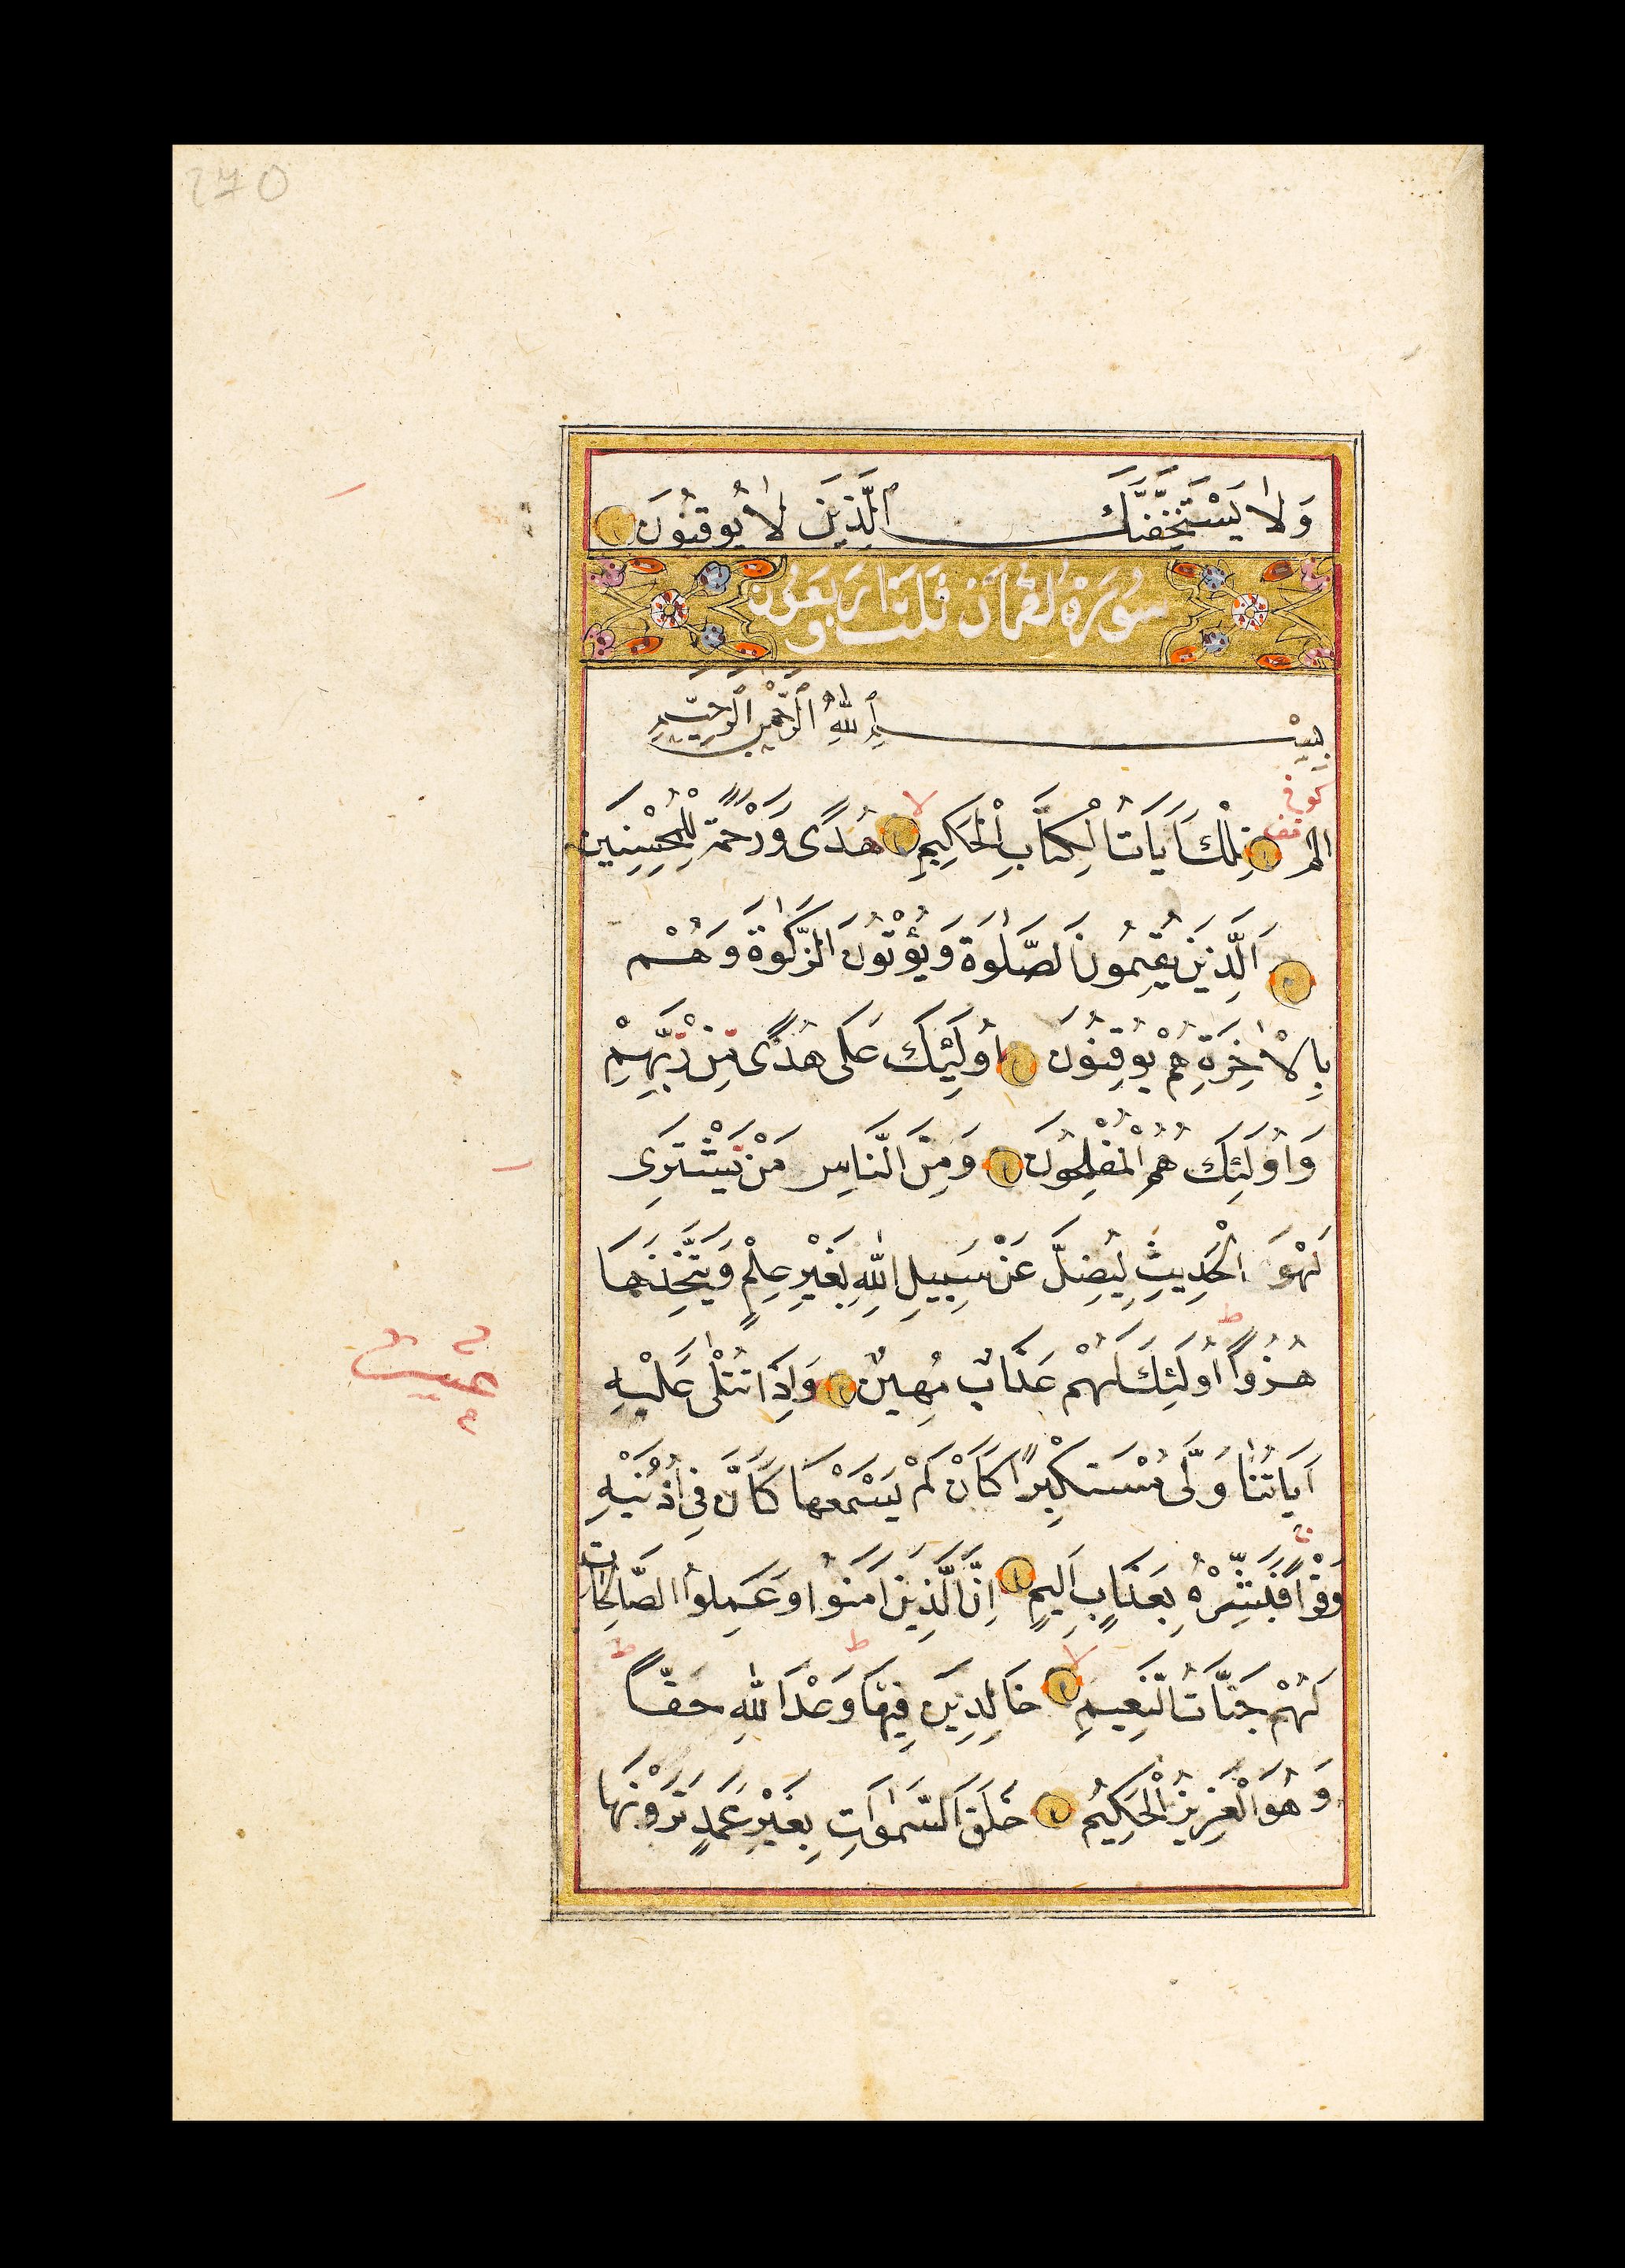 270
وَلَا يَسْتَخِفَّنَّكَ الَّذِينَ لَا يُوقِنُونَ
سُورَةُ لُقْمَان ثَلَثَا وَرَبَعُون
بِسْمِ اللّٰهِ الرَّحْمٰنِ الرَّحِيمِ
كوفى
قف لا
الم تِلْكَ آيَاتُ الْكِتَابِ الْحَكِيمِ هُدًى وَرَحْمَةً لِلْمُحْسِنِينَ
اَلَّذِينَ يُقِيمُونَ الصَّلٰوةَ وَيُؤْتُونَ الزَّكٰوةَ وَهُمْ
بِالْاٰخِرَةِ هُمْ يُوقِنُونَ اُولٰئِكَ عَلٰى هُدًى مِنْ رَبِّهِمْ
وَاُولَئِكَ هُمُ الْمُفْلِحُونَ وَمِنَ النَّاسِ مَنْ يَشْتَرِى
لَهْوَ الْحَدِيثِ لِيُضِلَّ عَنْ سَبِيلِ اللّٰهِ بِغَيْرِ عِلْمٍ وَيَتَّخِذَهَا
ط
هُزُوًا اُولَئِكَ لَهُمْ عَذَابٌ مُهِينٌ وَاِذَا تُتْلٰى عَلَيْهِ
اٰيَاتُنَا وَلّٰى مُسْتَكْبِرًا كَاَنْ لَمْ يَسْمَعْهَا كَاَنَّ فِى اُذُنَيْهِ
وَقْرًا فَبَشِّرْهُ بِعَذَابٍ اَلِيمٍ اِنَّ الَّذِينَ اٰمَنُوا وَعَمِلُوا الصَّالِحَاتِ
لا ط ط
لَهُمْ جَنَّاتُ النَّعِيمِ خَالِدِينَ فِيهَا وَعْدَ اللّٰهِ حَقًّا
وَهُوَ الْعَزِيزُ الْحَكِيمُ خَلَقَ السَّمٰوَاتِ بِغَيْرِ عَمَدٍ تَرَوْنَهَا